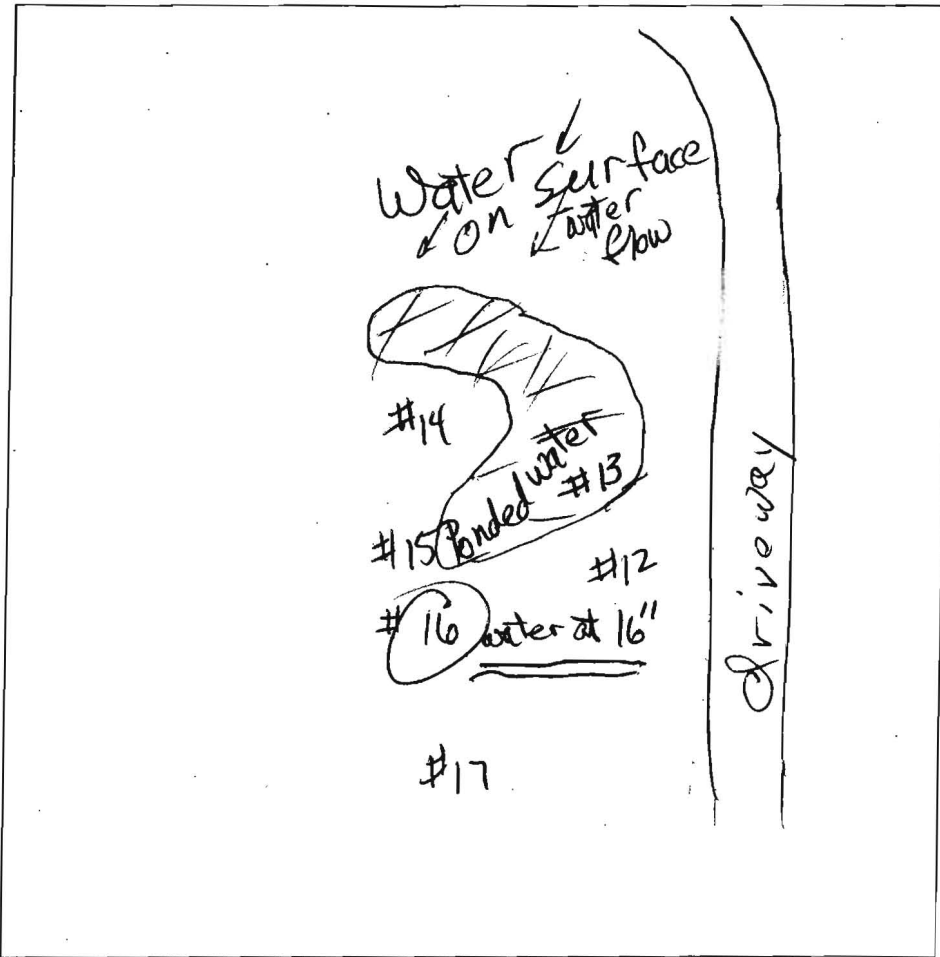 Water Surface
on water
flow
#14
Ponded water
#13
#15
#12
#16 water at 16"
#17
Driveway